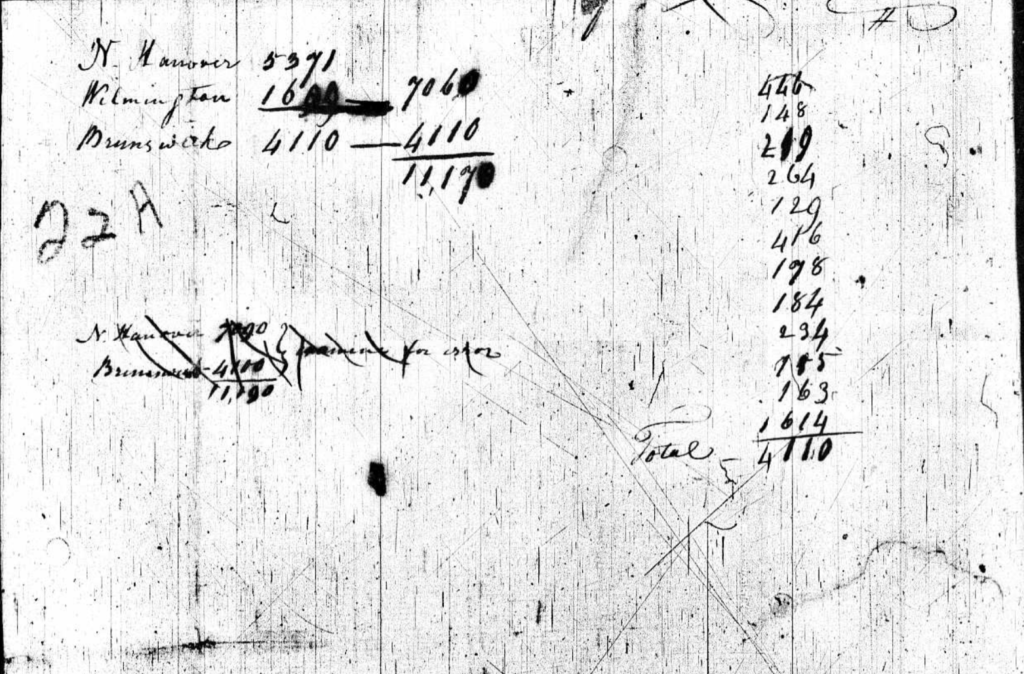 N. Hanover 5371
Wilmington 1689 — 7060
Brunswick 4110 — 4110
11,170
22 A
N. Hanover 7090
Brunswick 4100 } examine for error
11,190
446
148
219
264
129
416
198
184
234
155
163
1614
Total 4110